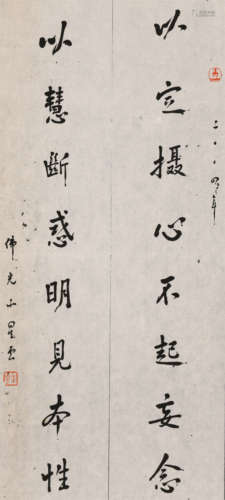 以定攝心不起妄念
二〇〇四年
以慧斷惑明見本性
佛光山星雲